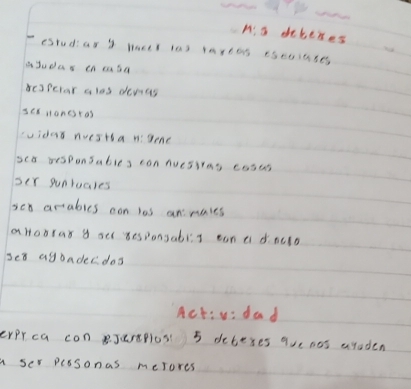 Mis deberes
- estudiar y hacer las tareas escolares
ayudar en casa
respetar a los demas
ser honestos
cuidar nuestra higene
ser responsables con nuestras cosas
ser puntuales
ser amables con los animales
ahorrar y ser responsables con el dinero
ser agradecidos
Actividad
explica con ejemplos 5 deberes que nos ayuden
a ser personas mejores